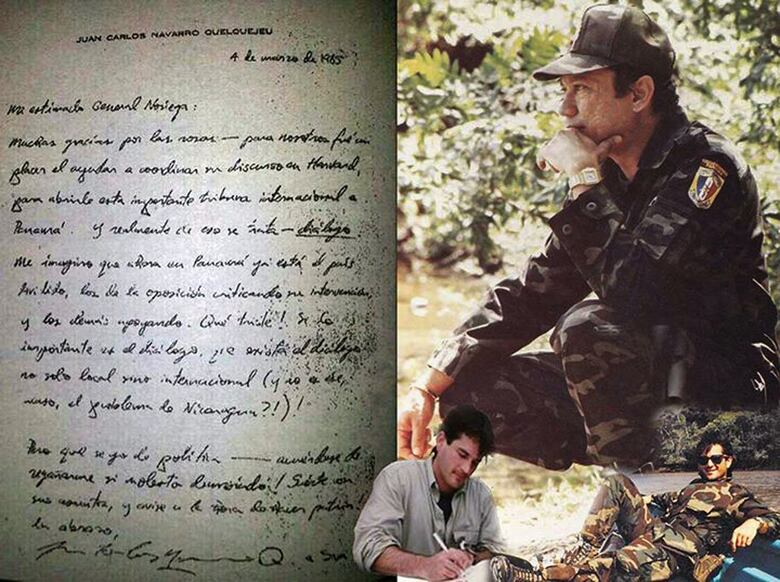 JUAN CARLOS NAVARRO QUELQUEJEU
4 de marzo de 1985
Mi estimado General Noriega:
Muchas gracias por las rosas — para nosotros fué un
placer el ayudar a coordinar su discurso en Harvard,
para abrirle esta importante tribuna internacional a
Panamá. Y realmente de eso se trata — diálogo
Me imagino que ahora en Panamá ya está el país
los de la oposición criticando su intervención,
y los demás apoyando. Qué triste! Si lo
importante es el diálogo, que exista el diálogo
no solo local sino internacional (y no a
caso, el problema de Nicaragua?!)!
Pero qué se yo de política — acuérdese de
regañarme si molesto demasiado! Siéntase en
su y avise a la hora de hacer patria!
Un abrazo,
Juan Carlos Navarro Q.